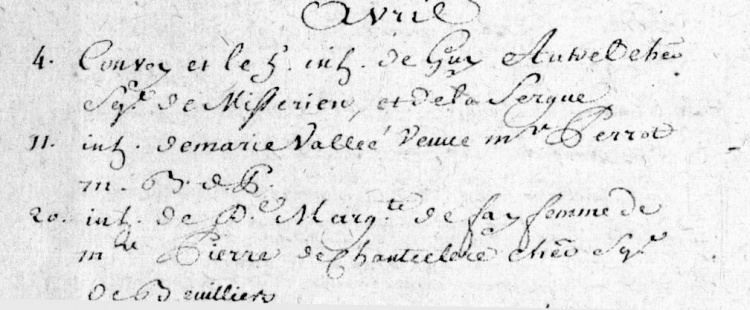 Avril
4. Convoy et le s. inh. de Guy Autvel che
Sgr. de Misserien, et de la Sergue
11. inh. de marie Vallée Veuve mr Perrot
m. B. d P.
20. inh. de De Margte de fay femme de
mre Pierre de Chanteclere cher Sgr
de Beuilliers